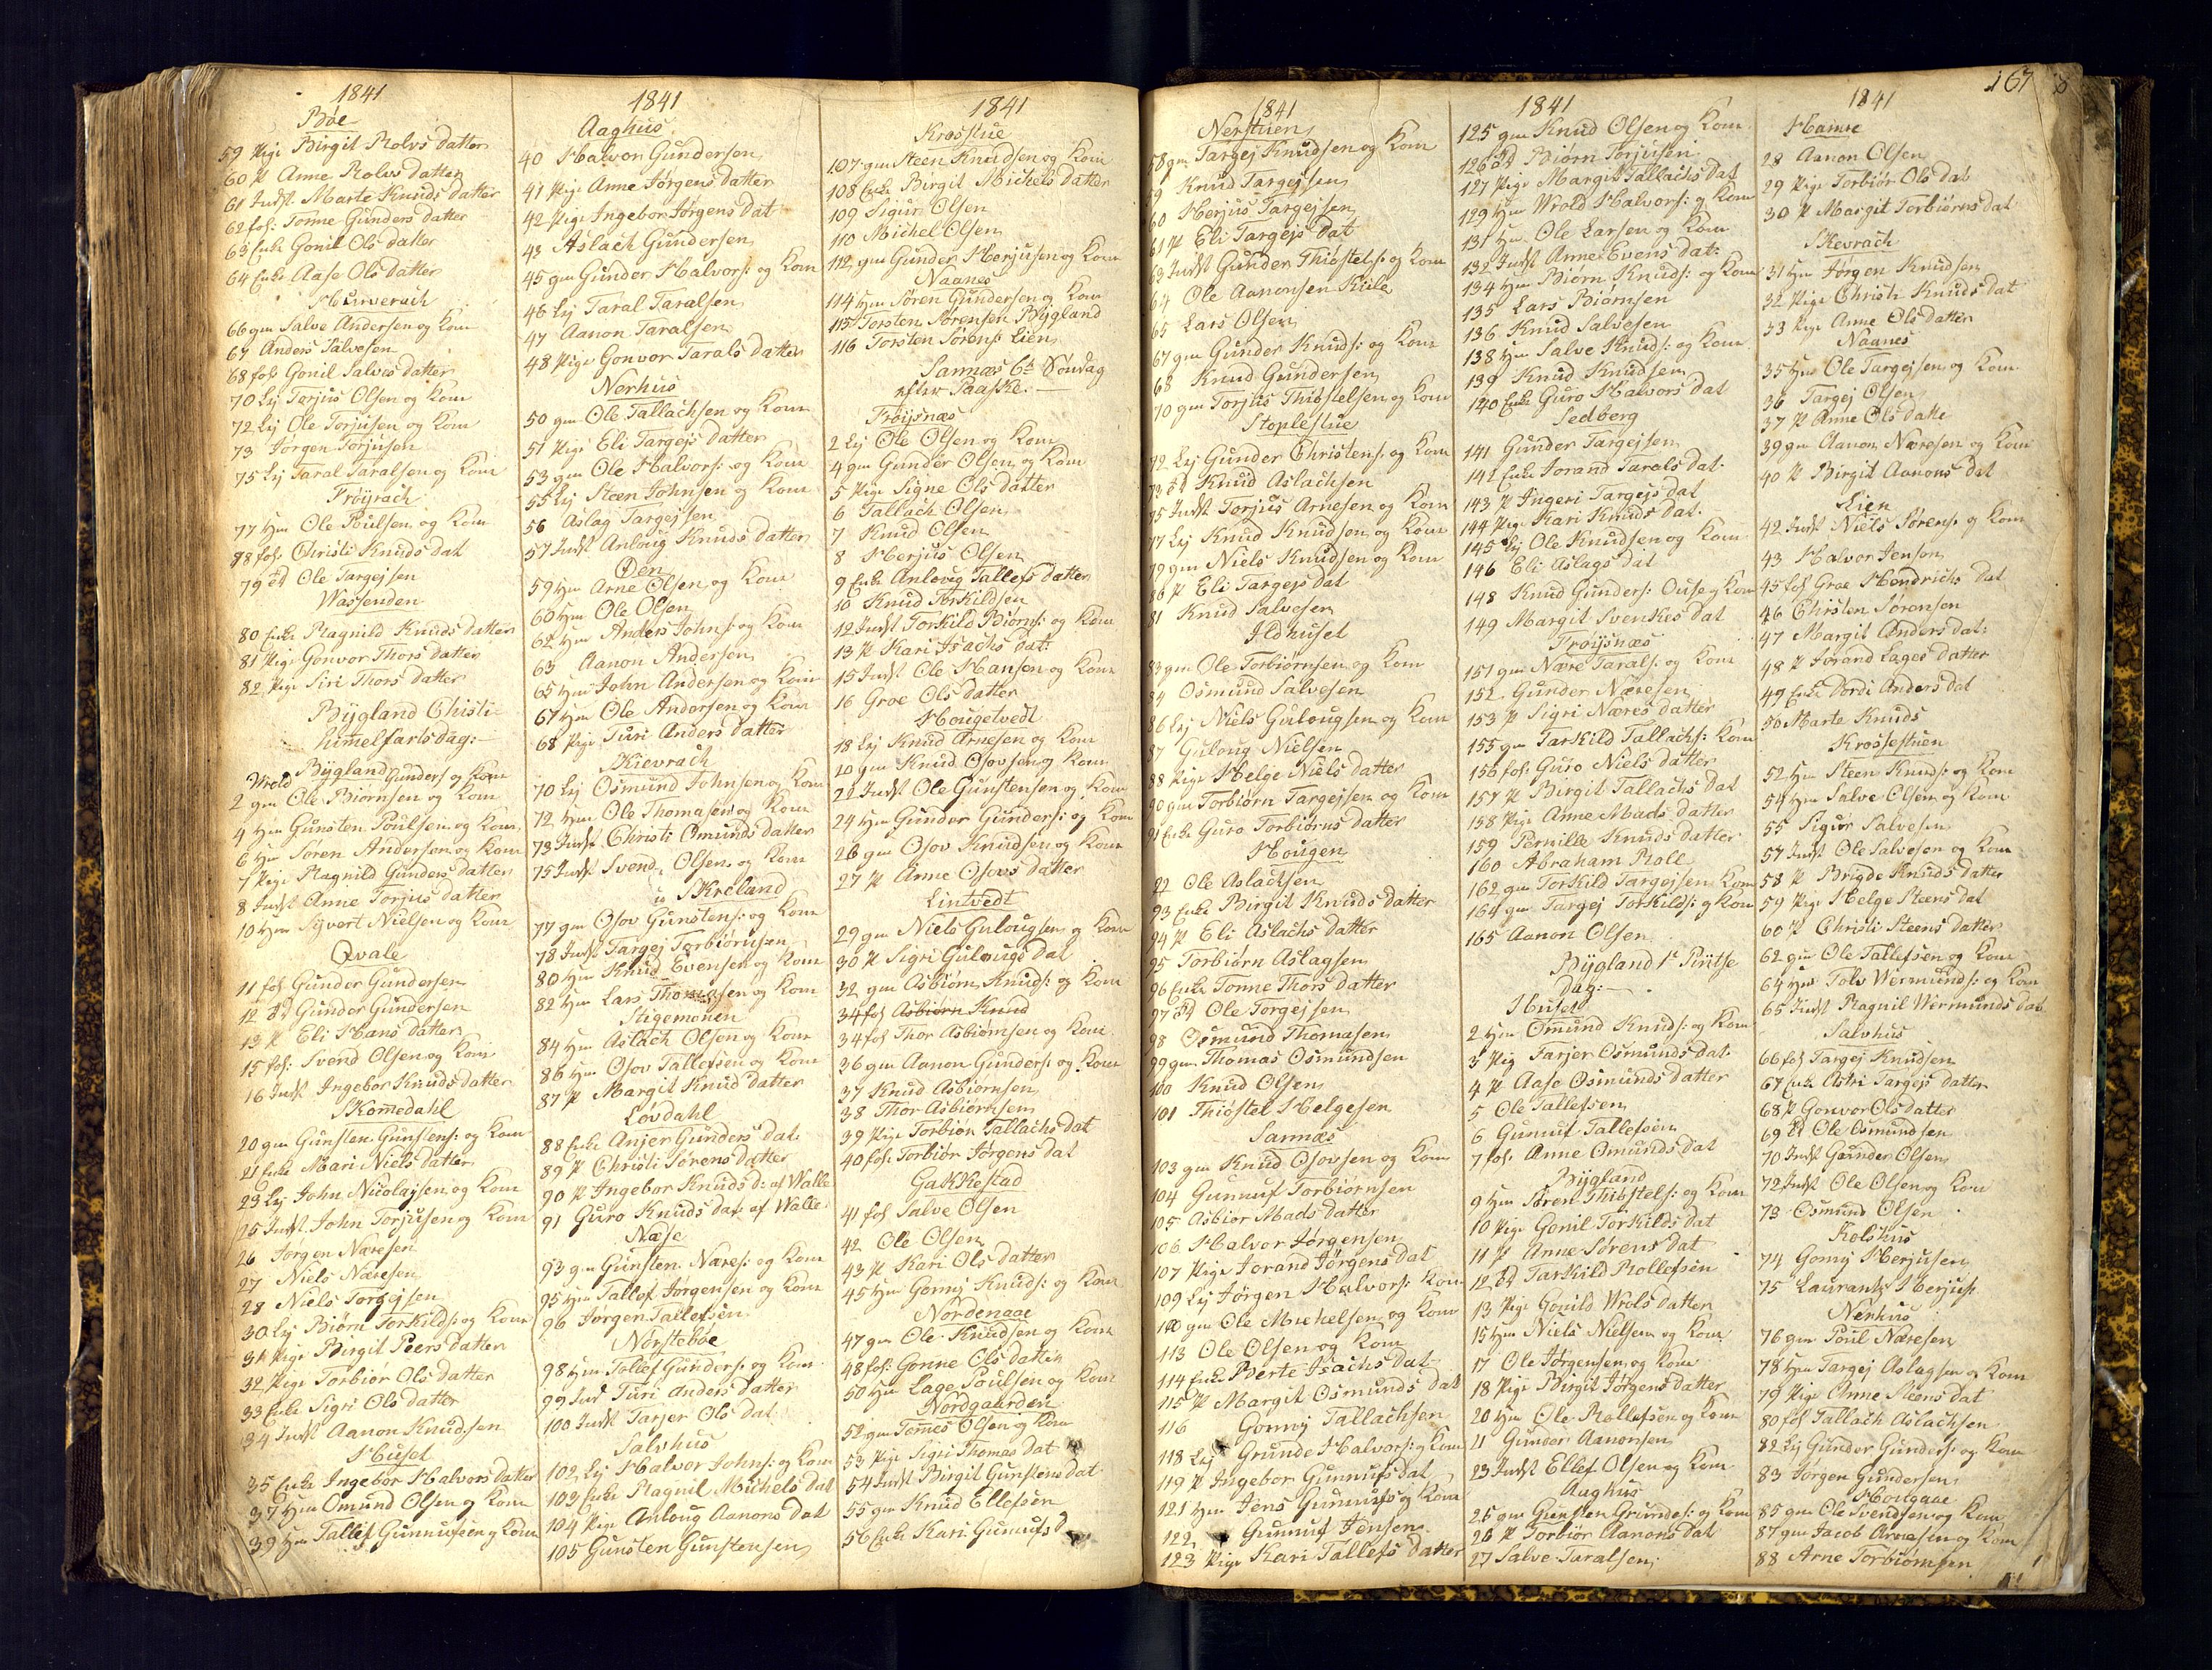 1841
Bøe
59 Pige Birgit Rolvs datter
60 P Anne Rolvs datter
61 Indst Marte Knuds datter
62 fos: Tonne Gunders datter
63 Enke Gonil Ols datter
64 Enke Aase Ols datter
66 gm Salve Andersen og Kom
67 Anders Salvesen
68 fos Gonil Salves datter
70 Lej Tarjus Olsen og Kom
72 Lej Ole Torjusen og Kom
73 Jørgen Torjusen
75 Lej Taral Taralsen og Kom
Frøyrach
77 Hm Ole Poulsen og Kom
78 fos Christi Knuds dat
79 Ole Targejsen
Wassenden
80 Enke Ragnild Knuds datter
81 Pige Gonvor Thors datter
82 Pige Siri Thors datter
Bygland Christi
himmelfartsdag:
Bygland
Wrold Gunders og Kom
2 gm Ole Biørnsen og Kom
4 Hm Gunsten Poulsen og Kom
6 Hm Søren Andersen og Kom
7 Pige Ragnild Gunders datter
8 Indst Anne Torjus datter
10 Hm Syvort Nielsen og Kom
Qvale
11 fos Gunder Gundersen
12 Gunder Gundersen
13 P Eli Hans datter
15 fos: Svend Olsen og Kom
16 Indst Ingebor Knuds datter
Skomedahl
20 gm Gunsten Gunstens: og Kom
21 Enke Mari Niels datter
23 Lej John Nicolajsen og Kom
25 Indst. John Torjusen og Kom
26 Jørgen Næresen
27 Niels Næresen
28 Niels Torgejsen
30 Lej Biørn Torkilds: og Kom
31 Pige Birgit Peers datter
32 Pige Torbiør Ols datter
33 Enke Sigri Ols datter
34 Indst Aanon Knudsen
Huset
35 Enke Ingebor Halvors datter
37 Hm Omund Olsen og Kom
39 Hm Tallef Gunnufsen og Kom
1841
Aaghus
40 Halvor Gundersen
41 Pige Anne Jørgens datter
42 Pige Ingebor Jørgens dat
43 Aslach Gundersen
45 gm Gunder Halvors: og Kom
46 Lej Taral Taralsen
47 Aanon Taralsen
48 Pige Gonvor Tarals datter
Nerhus
50 gm Ole Tallachsen og Kom
51 Pige Eli Targejs datter
53 gm Ole Halvors: og Kom
55 Lej Steen Johnsen og Kom
56 Aslag Targejsen
57 Indst Anloug Knuds datter
Øen
59 Hm Arne Olsen og Kom
60 Hm Ole Olsen
62 Hm Anders Johns: og Kom
63 Aanon Andersen
65 Hm John Andersen og Kom
67 Hm Ole Andersen og Kom
68 Pige Turi Anders datter
Skievrach
70 Lej Osmund Johnsen og Kom
72 Hm Ole Thomasen og Kom
73 Indst Christi Omunds datter
75 Indst Svend Olsen og Kom
Skreland
77 gm Osov Gunstens: og Kom
78 Indst Targej Torbiørnsen
80 Hm Knud Evensen og Kom
82 Hm Lars Thomasen og Kom
Stigemonen
84 Hm Aslach Olsen og Kom
86 Hm Osov Tallefsen og Kom
87 P Margit Knud datter
Løvdahl
88 Enke Anjer Gunders dat.
89 P Christi Sørens datter
90 P Ingebor Knuds d: af Walle
91 Guro Knuds dat af Walle
Næse
93 gm Gunsten Næres: og Kom
95 Hm Tallef Jørgensen og Kom
96 Jørgen Tallefsen
Nørstebøe
98 Hm Tollef Gunders: og Kom
99 Ind Turi Anders datter
100 Indst Tarjer Ols dat
Salvhus
102 Lej Halvor Johns: og Kom
103 Enke Ragnil Michels dat
104 Pige Anloug Aanons dat
105 Gunsten Gunstensen
1841
Krosstue
107 gm Steen Knudsen og Kom
108 Enke Birgit Michels datter
109 Sigur Olsen
110 Michel Olsen
112 gm Gunder Herjusen og Kom
Naanes
114 Hm Søren Gundersen og Kom
115 Torsten Sørensen Bygland
116 Torsten Sørens: Lien
Sannæs 6te Søndag
efter Paaske.
Frøysnæs
2 Lej Ole Olsen og Kom
4 gm Gunder Olsen og Kom
5 Pige Signe Ols datter
6 Tallach Olsen
7 Knud Olsen
8 Herjus Olsen
9 Enke Anlovig Tallefs datter
10 Knud Torkildsen
12 Indst Torkild Biørns: og Kom
13 P Kari Isachs dat:
15 Indst Ole Hansen og Kom
16 Groe Ols datter
Hougetvedt
18 Lej Knud Arnesen og Kom
20 gm Knud Osovsen og Kom
22 Indst Ole Gunstensen og Kom
24 Hm Gunder Gunders: og Kom
26 gm Osov Knudsen og Kom
27 P Anne Osovs datter
Lintvedt
29 gm Niels Gulougsen og Kom
30 P Sigri Gulougs dat
32 gm Asbiørn Knuds: og Kom
34 fos Asbiørn Knud
34 fos Thor Asbiørnsen og Kom
36 gm Aanon Gunders: og Kom
37 Knud Asbiørnsen
38 Thor Asbiørnsen
39 Pige Torbiør Tallachs dat
40 fos: Torbiør Jørgens dat
Gakkestad
41 fos Salve Olsen
42 Ole Olsen
43 P Kari Ols datter
45 Hm Gonnj Knuds: og Kom
Nordenaae
47 gm Ole Knudsen og Kom
48 fos: Gonne Ols datter
50 Hm Lage Poulsen og Kom
Nordgaarden
52 gm Tomes Olsen og Kom
53 Pige Sigri Thomas dat
54 Indst Birgit Gunstens dat
55 gm Knud Ellefsen
56 Enke Kari Gunnufs d
167
1841
Nerstuen
58 gm Targej Knudsen og Kom
59 Knud Targejsen
60 Herjus Targejsen
61 P Eli Targejs dat
63 Indst Gunder Thiøstels: og Kom
64 Ole Aanonsen Kiile
65 Lars Olsen
67 gm Gunder Knuds: og Kom
68 Knud Gundersen
70 gm Torjus Thiøstelsen og Kom
Stoplestue
72 Lej Gunder Christens: og Kom
73 Knud Aslachsen
75 Indst Torjus Arnesen og Kom
77 Lej Knud Knudsen og Kom
79 gm Niels Knudsen og Kom
80 P Eli Targejs dat
81 Knud Salvesen
Ildhuset
83 gm Ole Torbiørnsen og Kom
84 Osmund Salvesen
86 Lej Niels Gulougsen og Kom
87 Guloug Nielsen
88 Pige Helge Niels datter
90 gm Torbiørn Targejsen og Kom
91 Enke Guro Torbiørns datter
Hougen
92 Ole Aslachsen
93 Enke Birgit Knuds datter
94 P Eli Aslachs datter
95 Torbiørn Aslagsen
96 Enke Tonne Thors datter
97 Ole Torgejsen
98 Osmund Thomasen
99 gm Thomas Osmundsen
100 Knud Olsen
101 Thiøstel Helgesen
Sannæs
103 gm Knud Osovsen og Kom
104 Gunnuf Torbiørnsen
105 Asbiør Mads datter
106 Halvor Jørgensen
107 Pige Jorand Jørgens dat
109 Lej Jørgen Halvors: Kom
gm Ole Michelsen og Kom
113 Ole Olsen og Kom
114 Enke Berte Isachs dat
115 P Margit Osmunds dat
116 Gonnj Tallachsen
118 Lej Grunde Halvors: og Kom
119 P Ingebor Gunnufs dat
121 Hm Jens Gunnufs og Kom
122 Gunnuf Jensen
123 Pige Kari Tallefs datter
1841
125 gm Knud Olsen og Kom
126 Biørn Torjusen
127 Pige Margit Tallachs dat
129 Hm Wrold Halvors: og Kom
131 Hm Ole Larsen og Kom
132 Indst Anne Evens dat:
134 Hm Biørn Knuds: og Kom
135 Lars Biørnsen
136 Knud Salvesen
138 Hm Salve Knuds: og Kom
139 Knud Knudsen
140 Enke Guro Halvors dat
Sedberg
141 Gunder Targejsen
142 Enke Jorand Tarals dat.
143 P Ingeri Targejs dat
144 Pige Kari Knuds dat.
145 Lej Ole Knudsen og Kom
146 Eli Aslags dat
148 Knud Gunders: Ouse og Kom
149 Margit Svenkes dat
Frøysnæs
151 gm Nære Tarals: og Kom
152 Gunder Næresen
153 P Sigri Næres datter
155 gm Tarkild Tallachs: Kom
156 fos: Guro Niels datter
157 P Birgit Tallachs dat
158 Pige Anne Mads datter
159 Pernille Knuds datter
160 Abraham Roll
162 gm Torkild Targejsen Kom
164 gm Targej Torkilds: og Kom
165 Aanon Olsen
Bygland 1t Pintse
dag:
Huset
2 Hm Omund Knuds: og Kom
3 Pig Tarjer Osmunds dat.
4 P Aase Osmunds datter
5 Ole Tallefsen
6 Gunnuf Tallefsen
7 fos: Anne Omunds dat
Bygland
9 Hm Søren Thiøstels: og Kom
10 Pige Gonil Torkilds dat
11 P Anne Sørens dat
12 Tarkild Rollefsen
13 Pige Gonild Wrols datter
15 Hm Niels Nielsen og Kom
17 Ole Jørgensen og Kom
18 Pige Birgit Jørgens datter
20 Hm Ole Rollefsen og Kom
21 Gunder Aanonsen
23 Indst Ellef Olsen og Kom
Aaghus
25 gm Gunsten Grundes: og Kom
26 P Torbiør Aanons dat
27 Salve Taralsen
1841
Hamre
28 Aanon Olsen
29 Pige Torbiør Ols dat
30 P Margit Torbiørns dat
Skevrach
31 Hm Jørgen Knudsen
32 Pige Christi Knuds dat
33 Pige Anne Ols datter
Naanes
35 Hm Ole Targejsen og Kom
36 Targej Olsen
37 P Anne Ols datte
39 gm Aanon Næresen og Kom
40 P Birgit Aanons dat
Lien
42 Indst Niels Sørens: og Kom
43 Halvor Jensen
45 fos Groe Hendrichs dat
46 Christen Sørensen
47 Margit Anders dat:
48 P Jorand Lages datter
49 Enke Dordi Anders dat
50 Marte Knuds
Krossestuen
52 Hm Steen Knuds: og Kom
54 Hm Salve Olsen og Kom
55 Sigur Salvesen
57 Indst Ole Salvesen og Kom
58 P Brigde Knuds datter
59 Pige Helge Steens dat
60 P Christi Steens datter
62 gm Ole Tallefsen og Kom
64 Hm Tolv Wermunds: og Kom
65 Indst Ragnil Wermunds dat
Salvhus
66 fos Targej Knudsen
67 Enke Astri Targejs datter
68 P Gonvor Ols datter
69 Ole Osmundsen
70 Indst Gunder Olsen
72 Indst Ole Olsen og Kom
73 Osmund Olsen
Kolshus
74 Gonnj Herjusen
75 Laurants Herjus:
Nerhus
76 gm Poul Næresen
78 Hm Targej Aslagsen og Kom
79 Pige Anne Steens dat
80 fos Tallach Aslachsen
82 Lej Gunder Gunders: og Kom
83 Jørgen Gundersen
Hougaae
85 gm Ole Svendsen og Kom
87 gm Jacob Arnesen og Kom
88 Arne Torbiørnsen